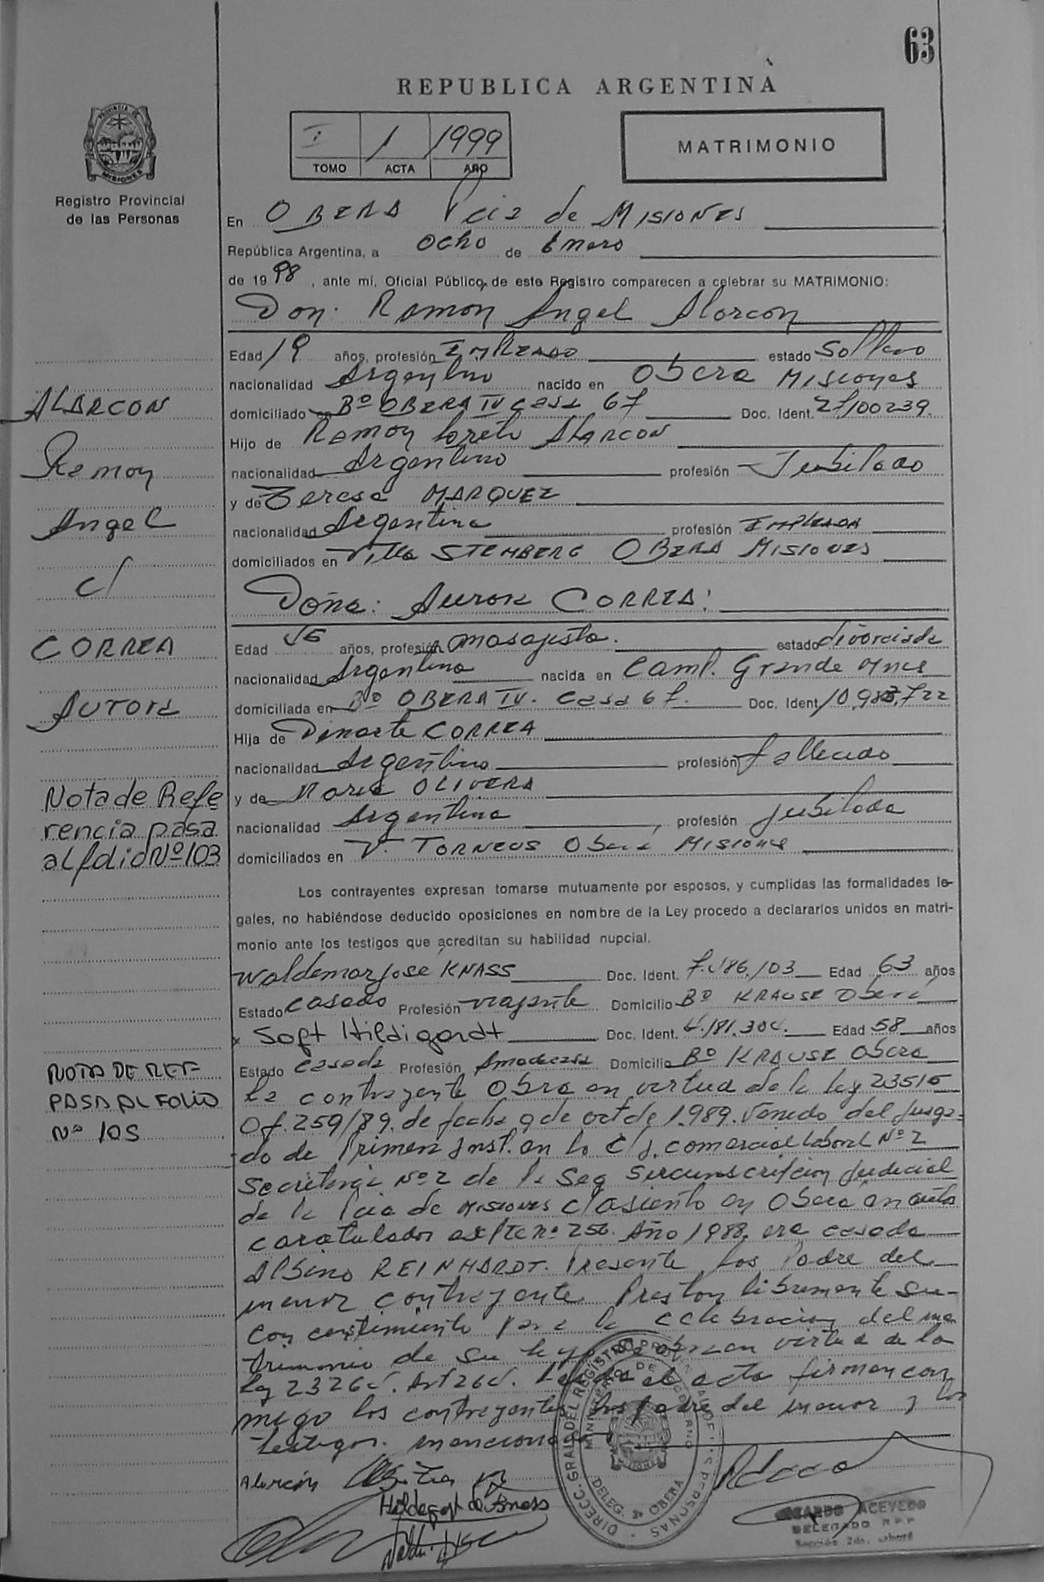 63
REPUBLICA ARGENTINA
I 1 1999
TOMO ACTA AÑO
MATRIMONIO
PROVINCIA DE MISIONES
Registro Provincial
de las Personas
En OBERA Pcia de MISIONES
República Argentina, a ocho de Enero
de 1998, ante mí, Oficial Público de este Registro comparecen a celebrar su MATRIMONIO:
Don: Ramon Angel Alarcon
Edad 19 años, profesión EMPLEADO estado Soltero
nacionalidad Argentino nacido en Obera MISIONES
domiciliado en Bº OBERA IV casa 67 Doc. Ident. 27100239
Hijo de Ramon Loreto ALARCON
nacionalidad Argentino profesión Jubilado
y de Teresa MARQUEZ
nacionalidad Argentina profesión EMPLEADA
domiciliados en Villa STEMBERG OBERA MISIONES
Doña: Aurora CORREA:
Edad años, profesión masajista. estado divorciada
nacionalidad Argentina nacida en Camp. Grande Mnes
domiciliada en Bº OBERA IV. Casa 67. Doc. Ident. 10.983.722
Hija de Dinarte CORREA
nacionalidad Argentino profesión fallecido
y de Maria OLIVERA
nacionalidad Argentina, profesión jubilada
domiciliados en V. TORNEUS Obera MISIONES
Los contrayentes expresan tomarse mutuamente por esposos, y cumplidas las formalidades le-
gales, no habiéndose deducido oposiciones en nombre de la Ley procedo a declararlos unidos en matri-
monio ante los testigos que acreditan su habilidad nupcial.
Waldemar José KNASS Doc. Ident. 7.586.103 Edad 63 años
Estado casado Profesión viajante Domicilio Bº KRAUSE Obera
x Soft Hildigardt Doc. Ident. 4.181.304. Edad 58 años
Estado casada Profesión Ama de casa Domicilio Bº KRAUSE Obera
La contrayente Obra en virtud de la ley 23515
Of. 259/89. de fecha 9 de oct de 1989. Venido del Juzga-
do de Primera Inst. en lo C/. comercial laboral Nº 2
Secretaria Nº 2 de la Seg Sircunscripcion Judicial
de la Pcia de MISIONES c/asiento en Obera en auto
caratulados expte nº 256. Año 1988, era casada
Albino REINHARDT. Presente los Padre del
menor contrayente Prestan libremente su
consentimiento para la celebracion del ma
trimonio de su hijo obran virtud de la
ley 23264. Art 264. Leida el acta firman con
migo los contrayentes los padre del menor y los
testigos. mencionados
ALARCON
Ramon
Angel
c/
CORREA
Aurora
Nota de Refe
rencia pasa
al folio Nº 103
NOTA DE REF-
PASA AL FOLIO
Nº 105
DIRECC. GRAL. DEL REGISTRO PROVINCIAL DE LAS PERSONAS
MINISTERIO DE GOBIERNO
DELEG. OBERA
Alarcón
Hildegart de Knass
RICARDO ACEVEDO
DELEGADO R.P.P
Sección 2da. Oberá